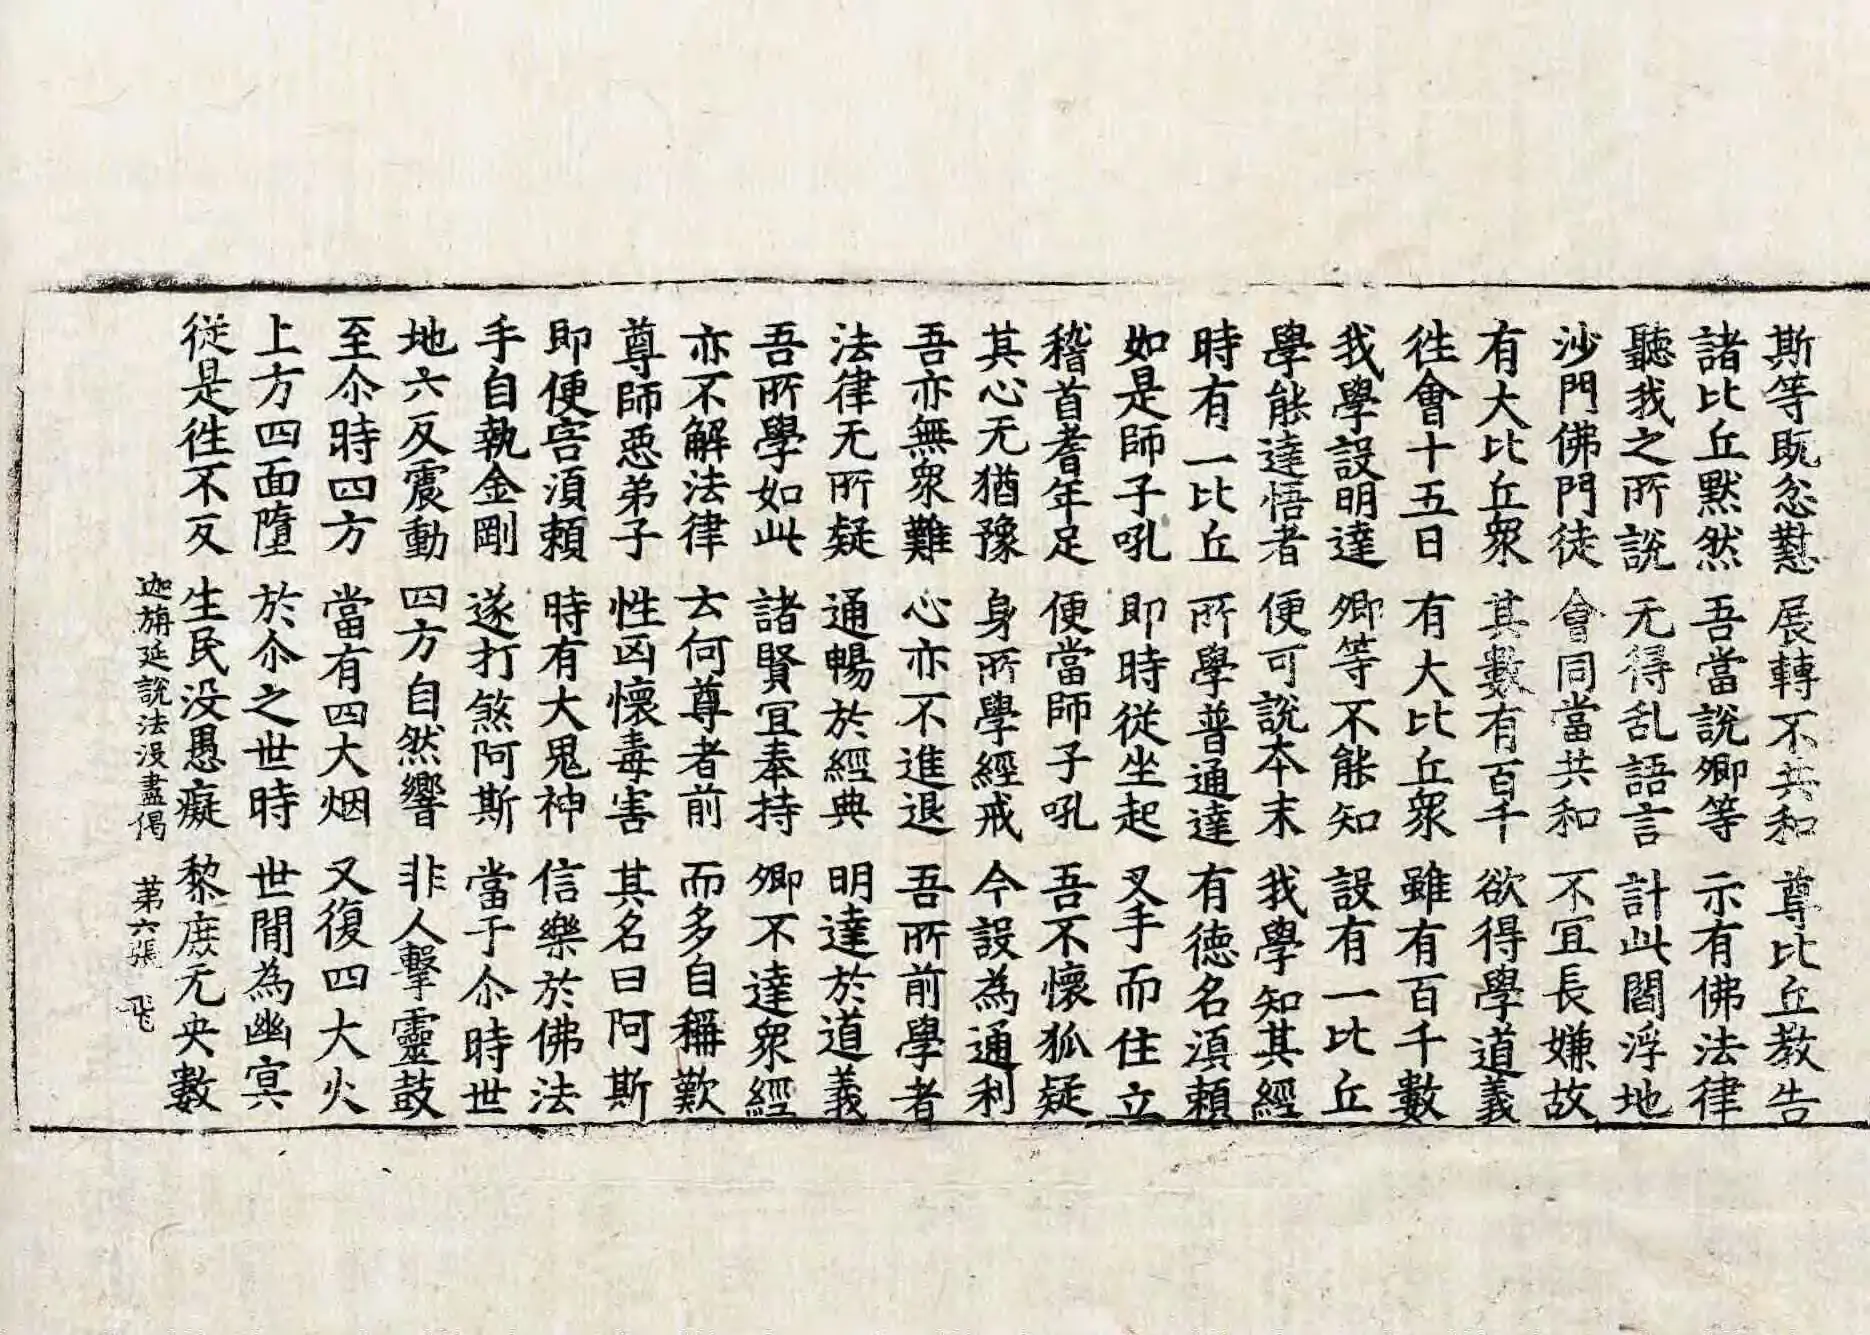 斯等既忿懟 展轉不共和 尊比丘教告
諸比丘默然 吾當說卿等 示有佛法律
聽我之所說 无得乱語言 計此閻浮地
沙門佛門徒 會同當共和 不宜長嫌故
有大比丘衆 其數有百千 欲得學道義
徃會十五日 有大比丘衆 雖有百千數
我學設明達 卿等不能知 設有一比丘
學能達悟者 便可說本末 我學知其經
時有一比丘 所學普通達 有德名湏賴
如是師子吼 即時從坐起 叉手而住立
稽首耆年足 便當師子吼 吾不懷狐疑
其心无猶豫 身所學經戒 今設為通利
吾亦無衆難 心亦不進退 吾所前學者
法律无所疑 通暢於經典 明達於道義
吾所學如此 諸賢宜奉持 卿不達衆經
亦不解法律 云何尊者前 而多自稱歎
尊師惡弟子 性凶懷毒害 其名曰阿斯
即便害湏賴 時有大鬼神 信樂於佛法
手自執金剛 遂打煞阿斯 當于尒時世
地六反震動 四方自然響 非人擊靈鼓
至尒時四方 當有四大烟 又復四大火
上方四面墮 於尒之世時 世間為幽冥
從是徃不反 生民没愚癡 黎庶无央數
迦旃延說法没盡偈 第六張 飛